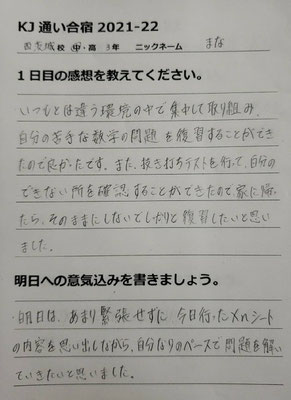 KJ 通い合宿 2021-22
西茨城校 中・高 3年 ニックネーム まな
1日目の感想を教えてください。
いつもとは違う環境の中で集中して取り組み、
自分の苦手な数学の問題を復習することができ
たので良かったです。また、抜き打ちテストを行って、自分の
できない所を確認することができたので家に帰っ
たら、そのままにしないでしっかりと復習したいと思い
ました。
明日への意気込みを書きましょう。
明日は、あまり緊張せずに、今日行ったメルシート
の内容を思い出しながら、自分なりのペースで問題を解い
ていきたいと思いました。